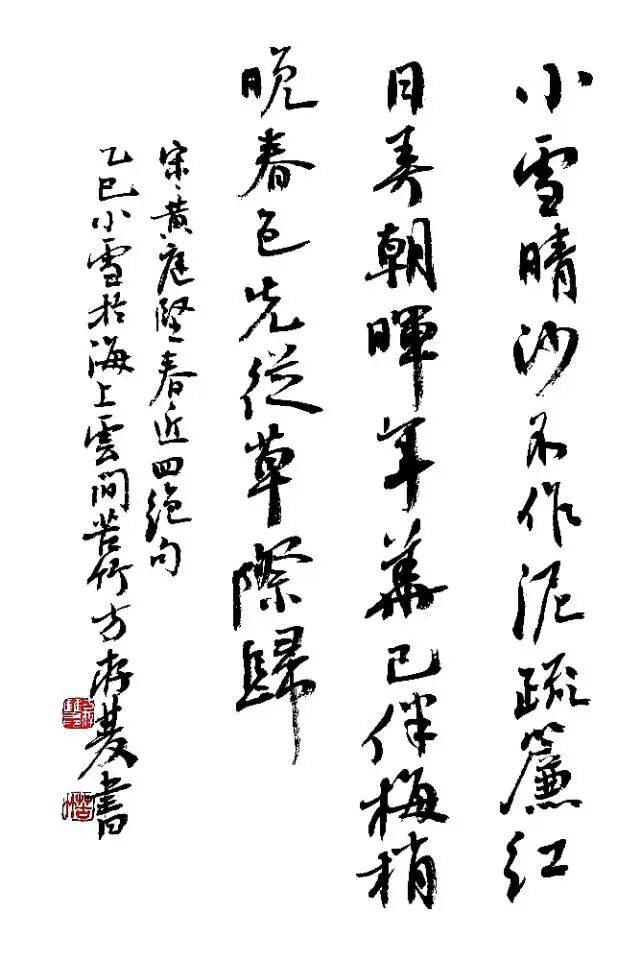 小雪晴沙不作泥疏簾紅
日弄朝暉年華已伴梅梢
晚春色先從草際歸
宋黄庭堅春近四絕句
乙巳小雪於海上雲間苦竹方書